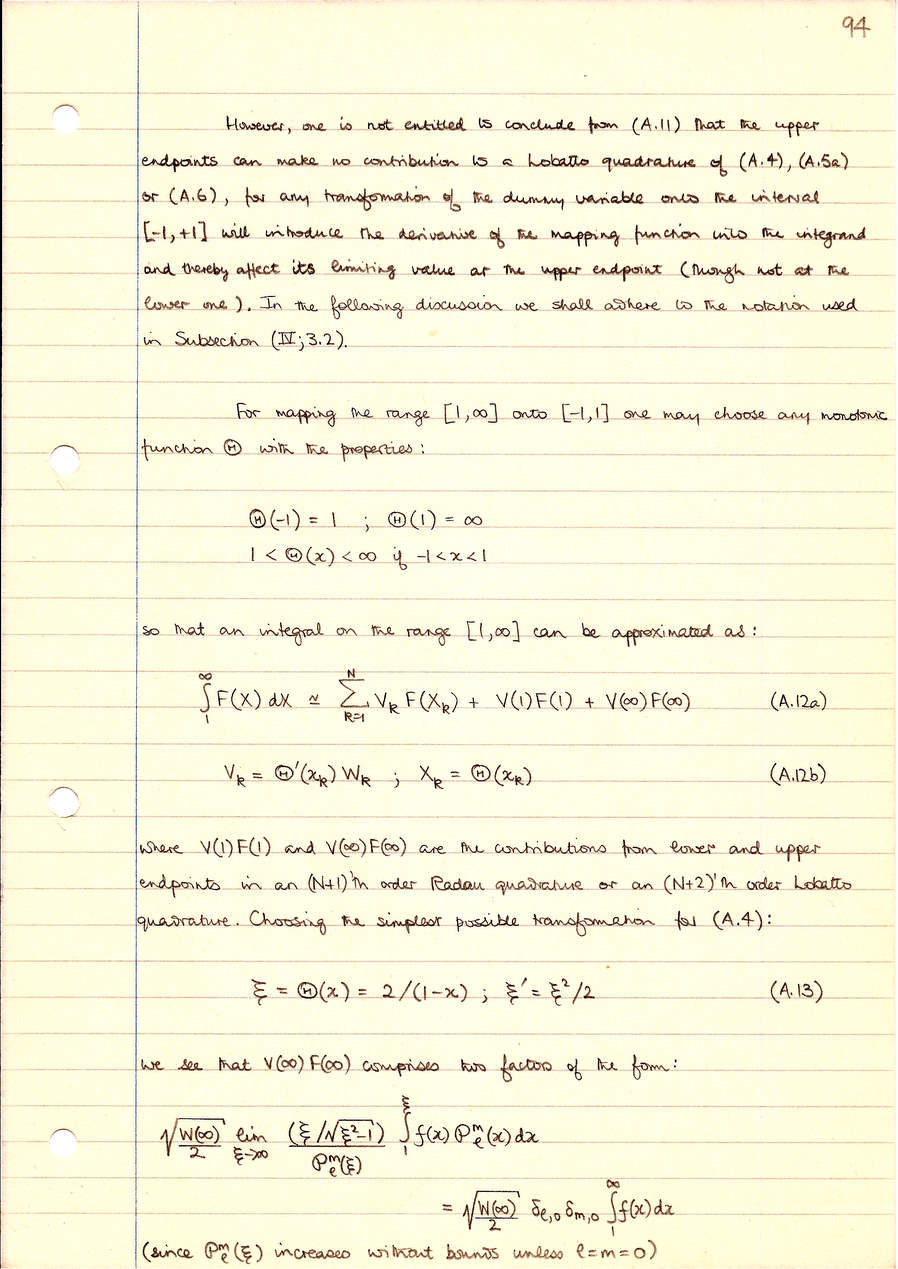 94
However, one is not entitled to conclude from (A.11) that the upper
endpoints can make no contribution to a Lobatto quadrature of (A.4), (A.5a)
or (A.6), for any transformation of the dummy variable onto the interval
[-1,+1] will introduce the derivative of the mapping function into the integrand
and thereby affect its limiting value at the upper endpoint (though not at the
lower one). In the following discussion we shall adhere to the notation used
in Subsection (IV; 3.2).
For mapping the range [1,∞] onto [-1,1] one may choose any monotonic
function Θ with the properties:
Θ(-1) = 1 ; Θ(1) = ∞
1 < Θ(x) < ∞ if -1 < x < 1
so that an integral on the range [1,∞] can be approximated as:
∫₁^∞ F(X) dX ≃ ∑_{k=1}^N V_k F(X_k) + V(1)F(1) + V(∞)F(∞) (A.12a)
V_k = Θ'(x_k) W_k ; X_k = Θ(x_k) (A.12b)
where V(1)F(1) and V(∞)F(∞) are the contributions from lower and upper
endpoints in an (N+1)'th order Radau quadrature or an (N+2)'th order Lobatto
quadrature. Choosing the simplest possible transformation for (A.4):
ξ = Θ(x) = 2/(1-x) ; ξ' = ξ²/2 (A.13)
we see that V(∞)F(∞) comprises two factors of the form:
√(W(∞)/2) lim_{ξ→∞} (ξ/√(ξ²-1))/P_ℓ^m(ξ) ∫₁^ξ f(x) P_ℓ^m(x) dx
= √(W(∞)/2) δ_{ℓ,0} δ_{m,0} ∫₁^∞ f(x) dx
(since P_ℓ^m(ξ) increases without bounds unless ℓ=m=0)